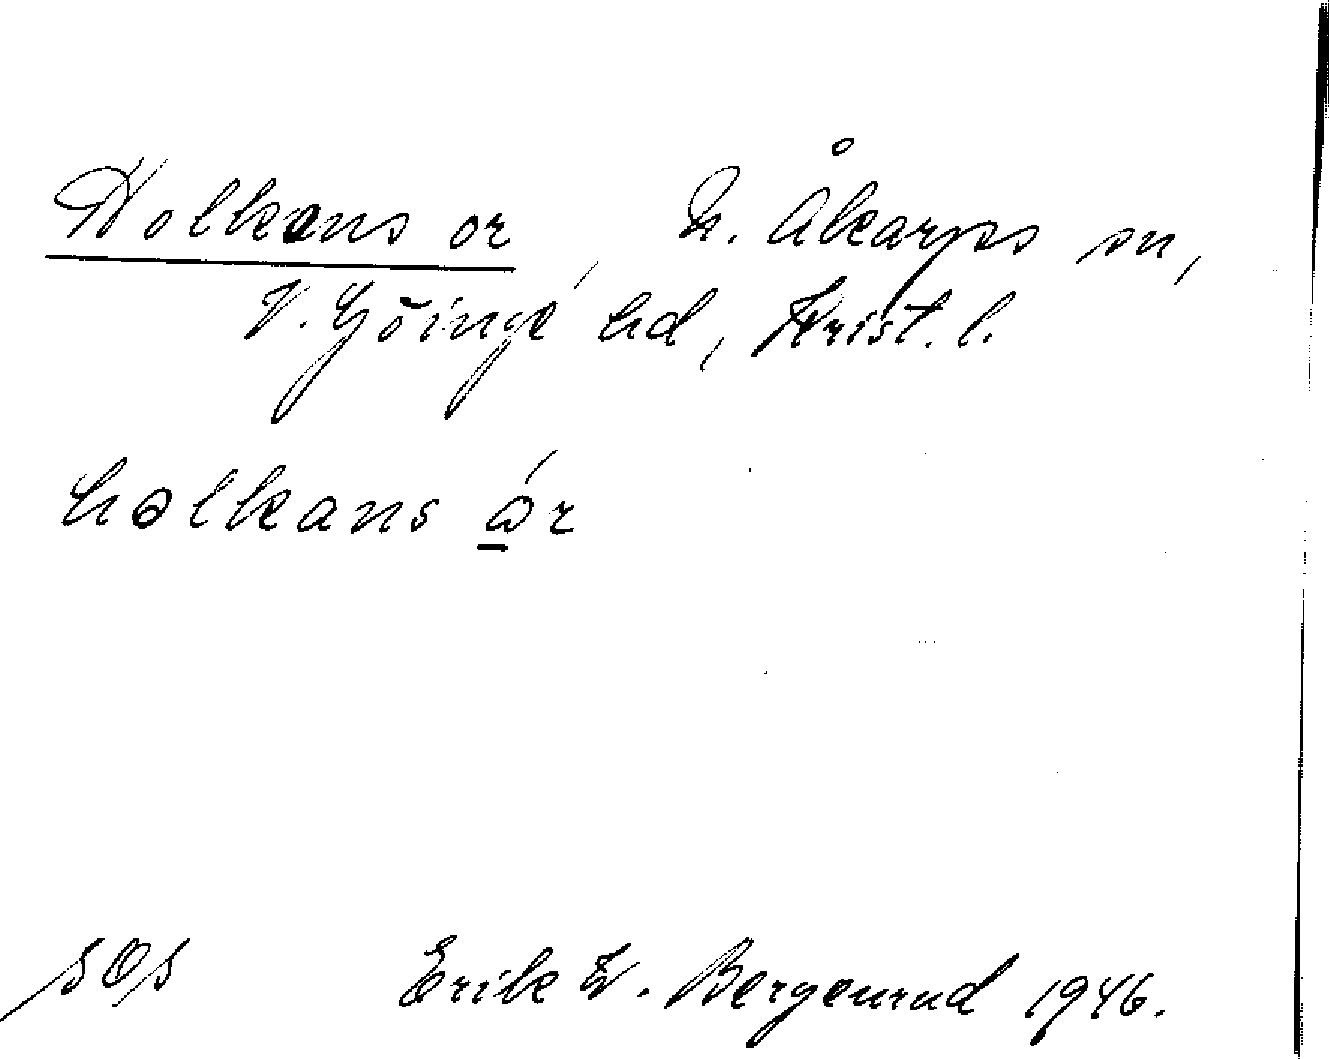 Holkans or, N. Åkarps sn,
V. Göinge hd, Krist. l.
holkans ór
sOs Erik W. Bergenrud 1946.